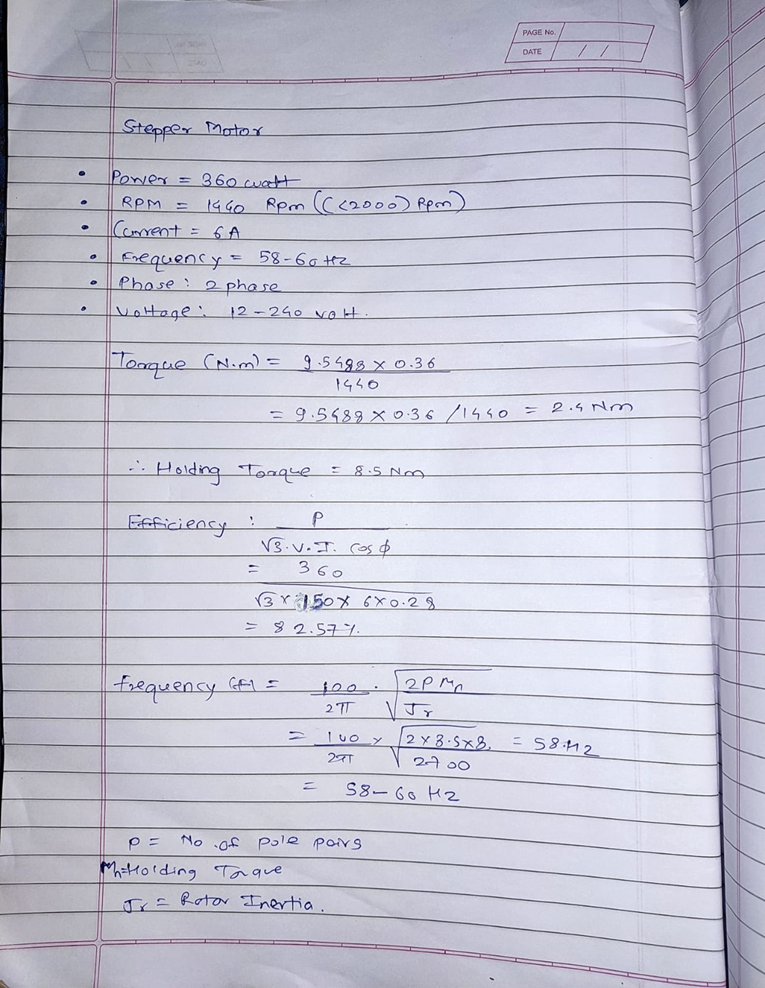 PAGE No.
DATE / /
Stepper Motor
• Power = 360 watt
• RPM = 1440 Rpm ((<2000) Rpm)
• Current = 6A
• Frequency = 58-60 Hz
• Phase : 2 phase
• Voltage : 12-240 volt.
Torque (N.m) = 9.5488 × 0.36
1440
= 9.5488 × 0.36 / 1440 = 2.4 Nm
∴ Holding Torque = 8.5 Nm
Efficiency : P
√3.V.I. cos φ
= 360
√3 × 150 × 6 × 0.28
= 82.57%.
Frequency (f) = 100 . √2PMn
2π Jr
= 100 × √2×8.5×8. = 58.Hz
2π 2700
= 58-60 Hz
P = No. of pole pairs
Mn=Holding Torque
Jr = Rotor Inertia.